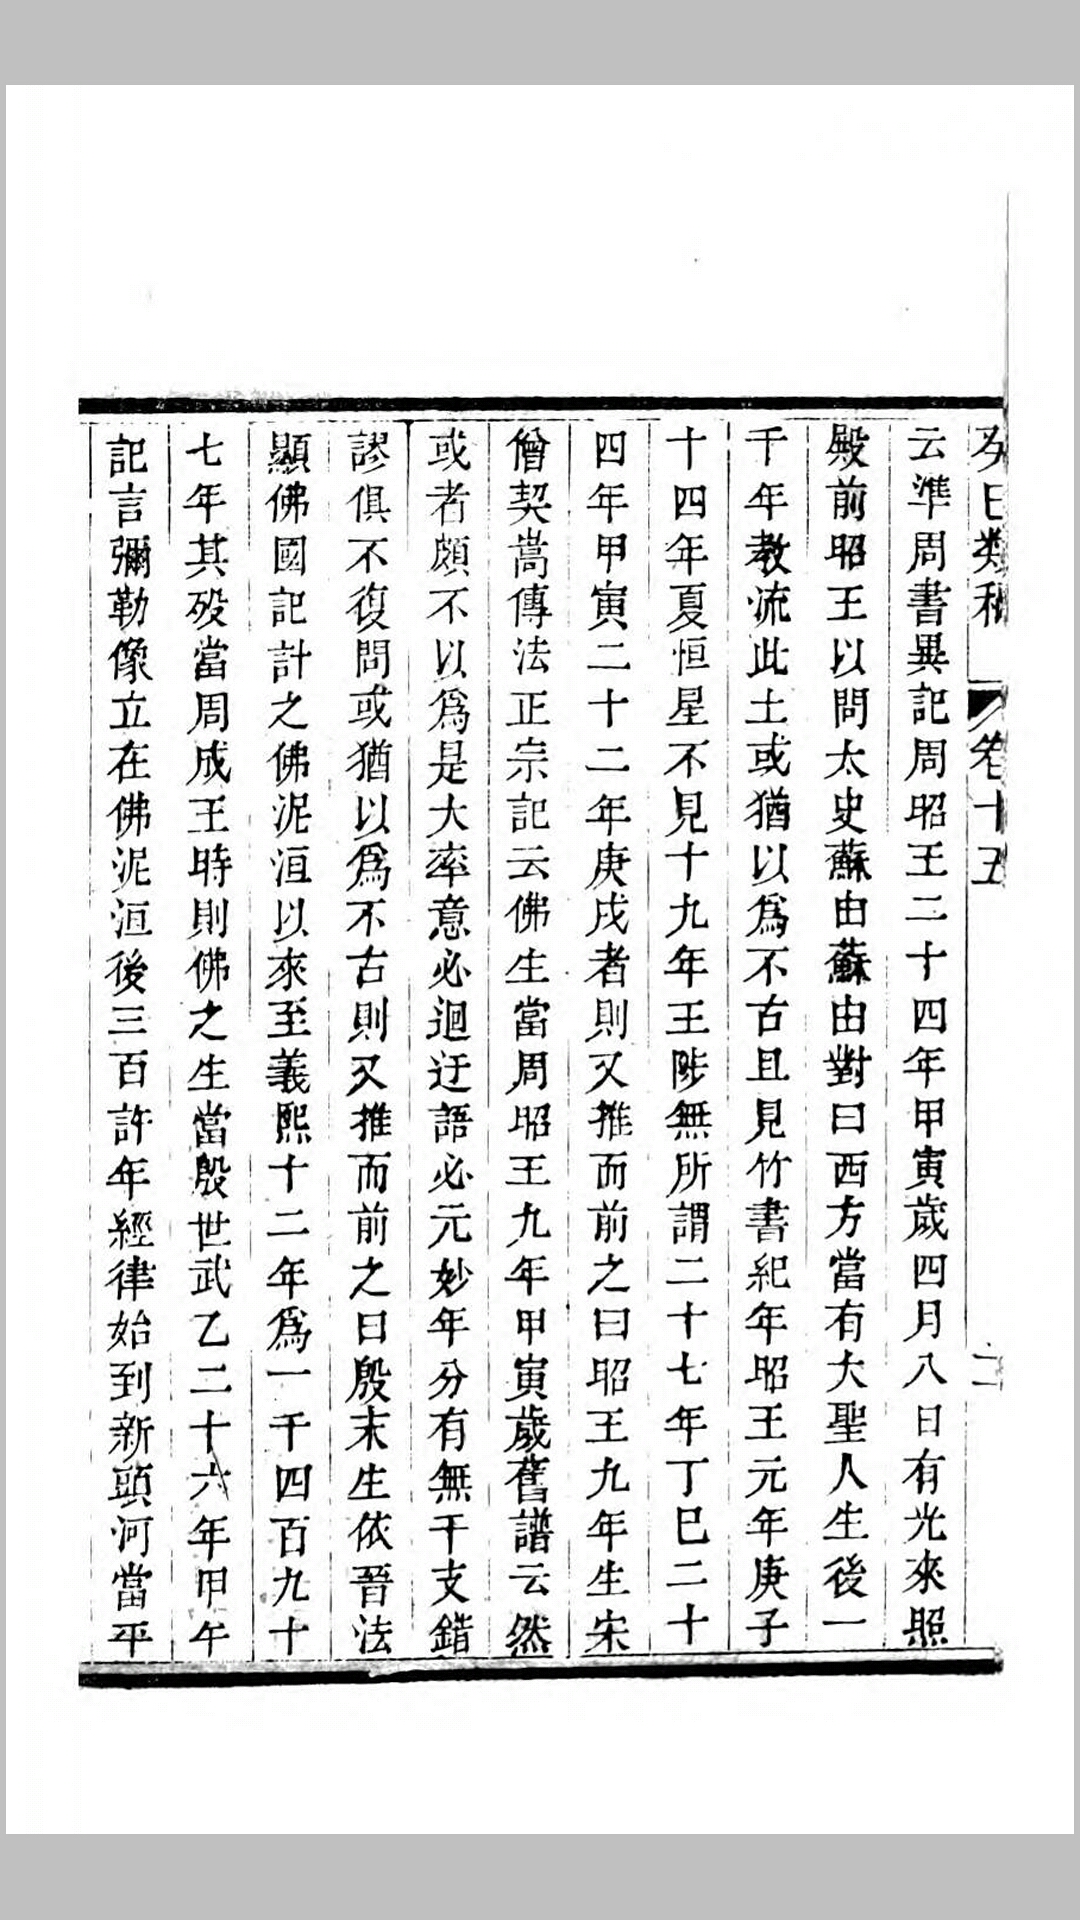 癸巳類稿 卷十五 二
云準周書異記周昭王二十四年甲寅歲四月八日有光來照
殿前昭王以問太史蘇由蘇由對曰西方當有大聖人生後一
千年教流此土或猶以爲不古且見竹書紀年昭王元年庚子
十四年夏恒星不見十九年王陟無所謂二十七年丁巳二十
四年甲寅二十二年庚戌者則又推而前之曰昭王九年生宋
僧契嵩傳法正宗記云佛生當周昭王九年甲寅歲舊譜云然
或者頗不以爲是大率意必迴迂語必元妙年分有無干支錯
謬俱不復問或猶以爲不古則又推而前之曰殷末生依晉法
顯佛國記計之佛泥洹以來至義熙十二年爲一千四百九十
七年其殁當周成王時則佛之生當殷世武乙二十六年甲午
記言彌勒像立在佛泥洹後三百許年經律始到新頭河當平